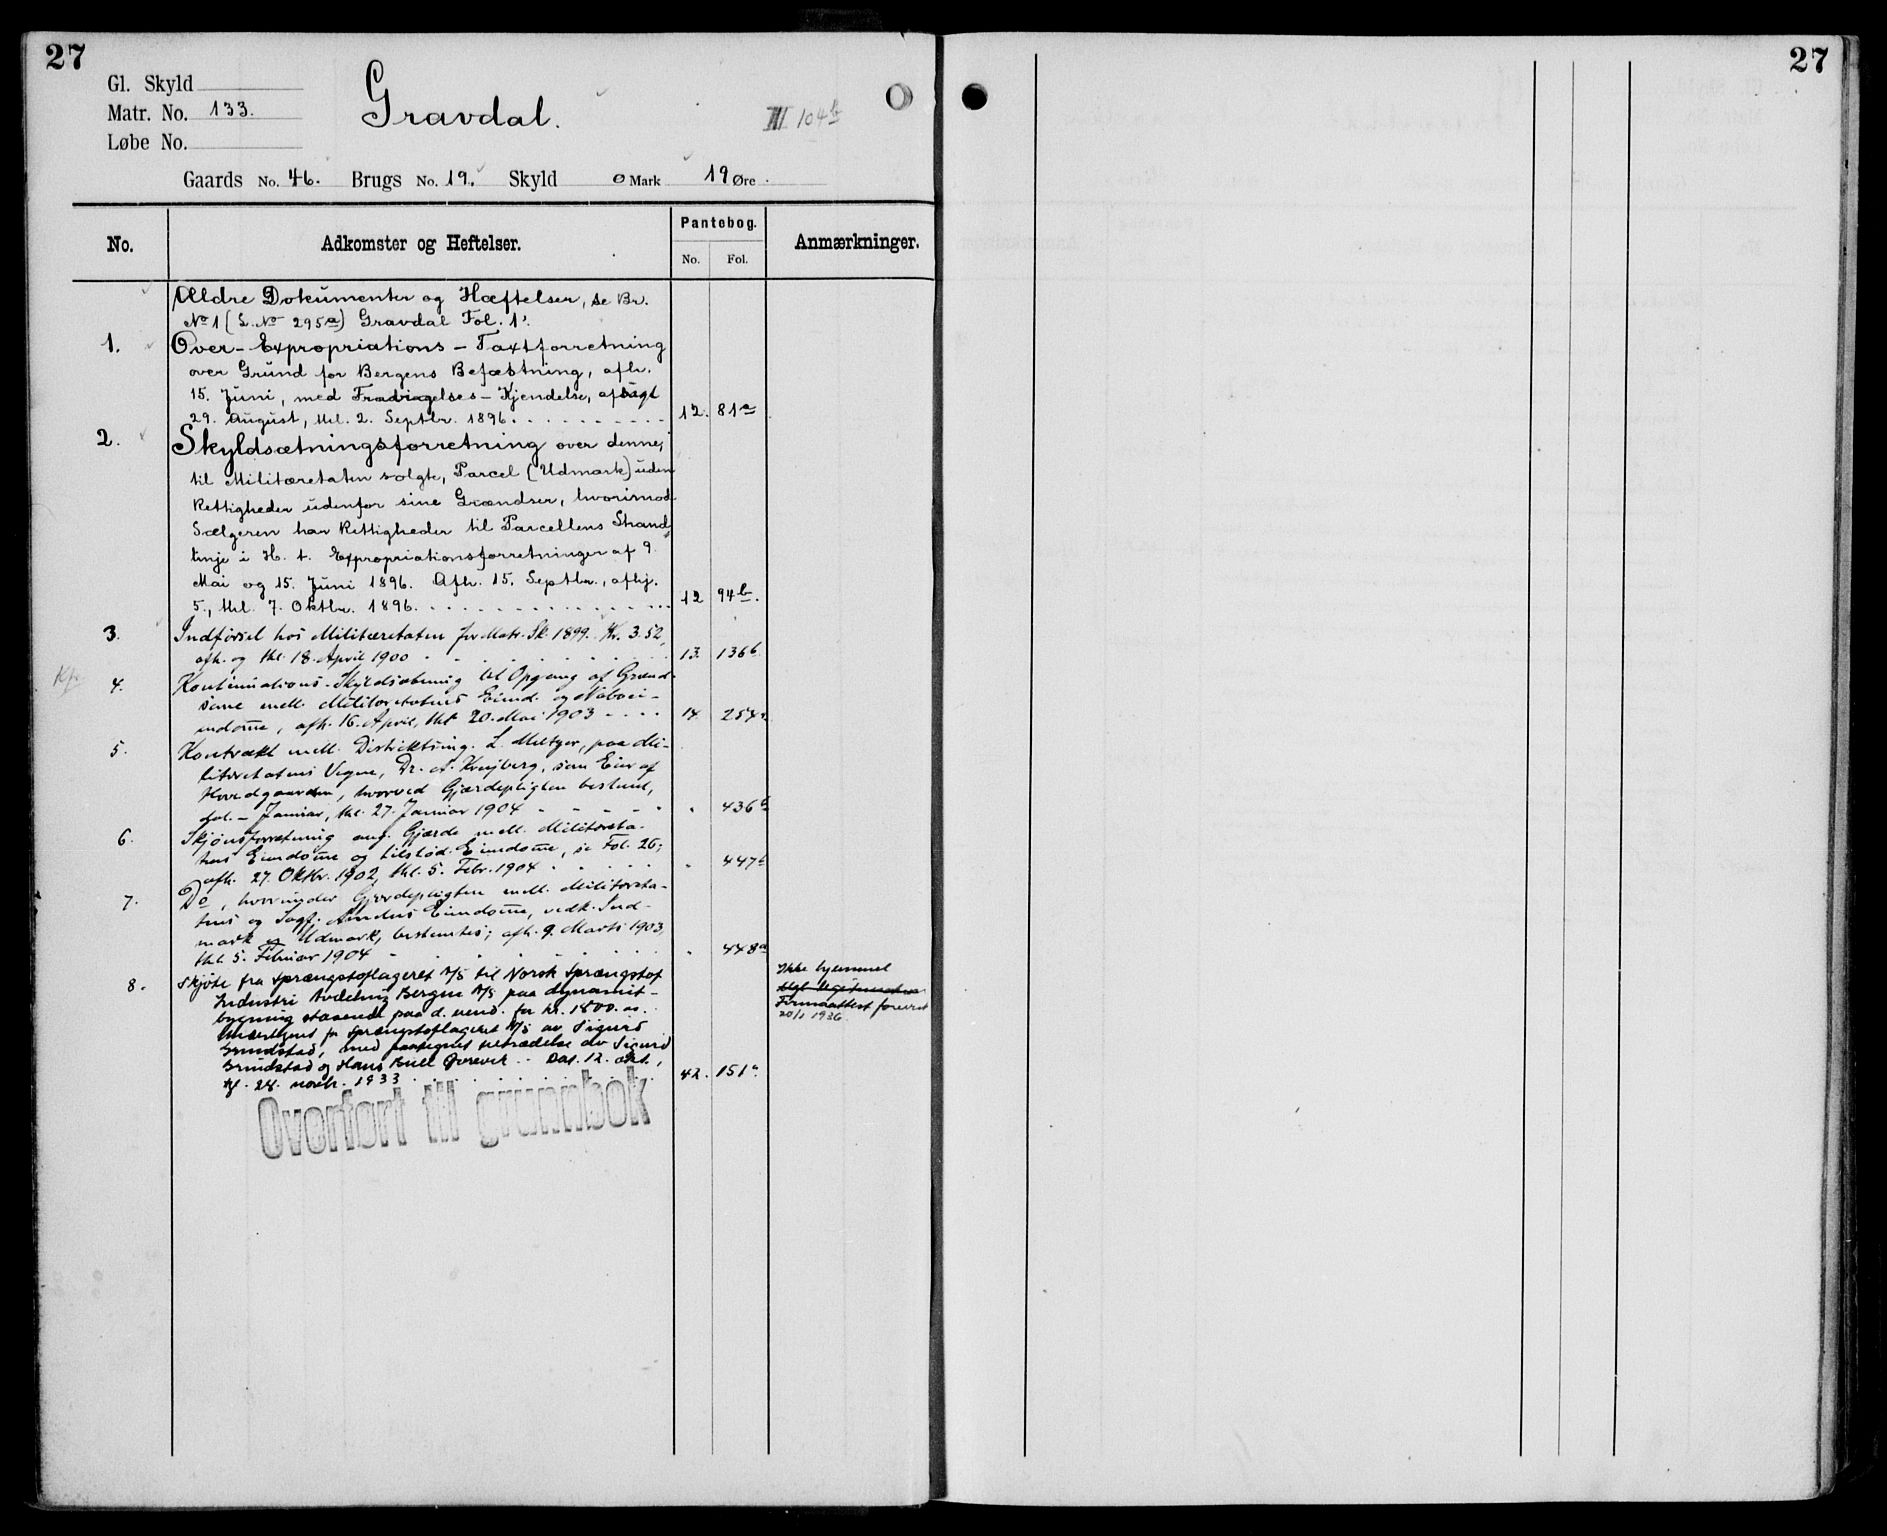 27
27
Gl. Skyld
Matr. No. 133.
Løbe No.
Gravdal.
III 104b
Gaards No. 46. Brugs No. 19. Skyld 0 Mark 19 Øre
No. Adkomster og Heftelser. Pantebog. Anmærkninger.
No. Fol.
Ældre Dokumenter og Hæftelser, se Br.
No 1 (L. No 295a) Gravdal Fol. 1.
1. Over-Expropriations-Taxtforretning
over Grund for Bergens Befæstning, afh.
15. Juni, med Fravigelses-Kjendelse, afsagt
29. August, thl. 2. Septbr. 1896. 12. 81a
2. Skyldsætningsforretning over denne,
til Militæretaten solgte, Parcel (Udmark) uden
Rettigheder udenfor sine Grændser, hvorimod
Sælgeren har Rettigheder til Parcellens Strand-
linje i H. t. Expropriationsforretninger af 9.
Mai og 15. Juni 1896. Afh. 15. Septbr., afhj.
5., thl. 7. Oktbr. 1896. 12 94b.
3. Indførsel hos Militæretaten for Matr. Sk. 1899. Kr. 3.52,
afh. og thl. 18. April 1900 13. 136b
4. Kontinuations-Skyldsætning til Opgang af Grænd-
serne mell. Militæretatens Eiend. og Naboei-
endome, afh. 16. April, thl. 20. Mai 1903 14. 254a
5. Kontrakt mell. Distriktsing. L. Meltzer, paa Mi-
litæretatens Vegne, Dr. A. Kreyberg, som Eier af
Hovedgaarden, hvorved Gjærdepligten bestemt,
dat. - Januar, thl. 27. Januar 1904 " 436b
6. Skjønsforretning ang. Gjærde mell. Militæreta-
tens Eiendome og tilstød. Eiendome, se Fol. 26;
afh. 27. Oktbr. 1902, thl. 5. Febr. 1904 " 447b
7. Do, hvorunder Gjærdepligten mell. Militæreta-
tens og Sagf. Eiendome, vedk. Ind-
mark og Udmark, bestemtes; afh. 9. Marts 1903,
thl. 5. Februar 1904 " 448a
8. Skjøte fra Sprængstoflageret A/S til Norsk Sprængstof
Industri Avdeling Bergen A/S paa dynamit-
bygning staaende paa d. eiend. for kr. 1800.00.
Undertegnet for Sprængstoflageret A/S av Sigurd
Grundstad, med paategnet tiltrædelse av Sigurd
Grundstad og Hans Bull Dat. 12. okt.,
tgl. 24. novbr. 1933 42. 151a
Ikke hjemmel
Firmaattest forevist
20/1 1936
Overført til grunnbok